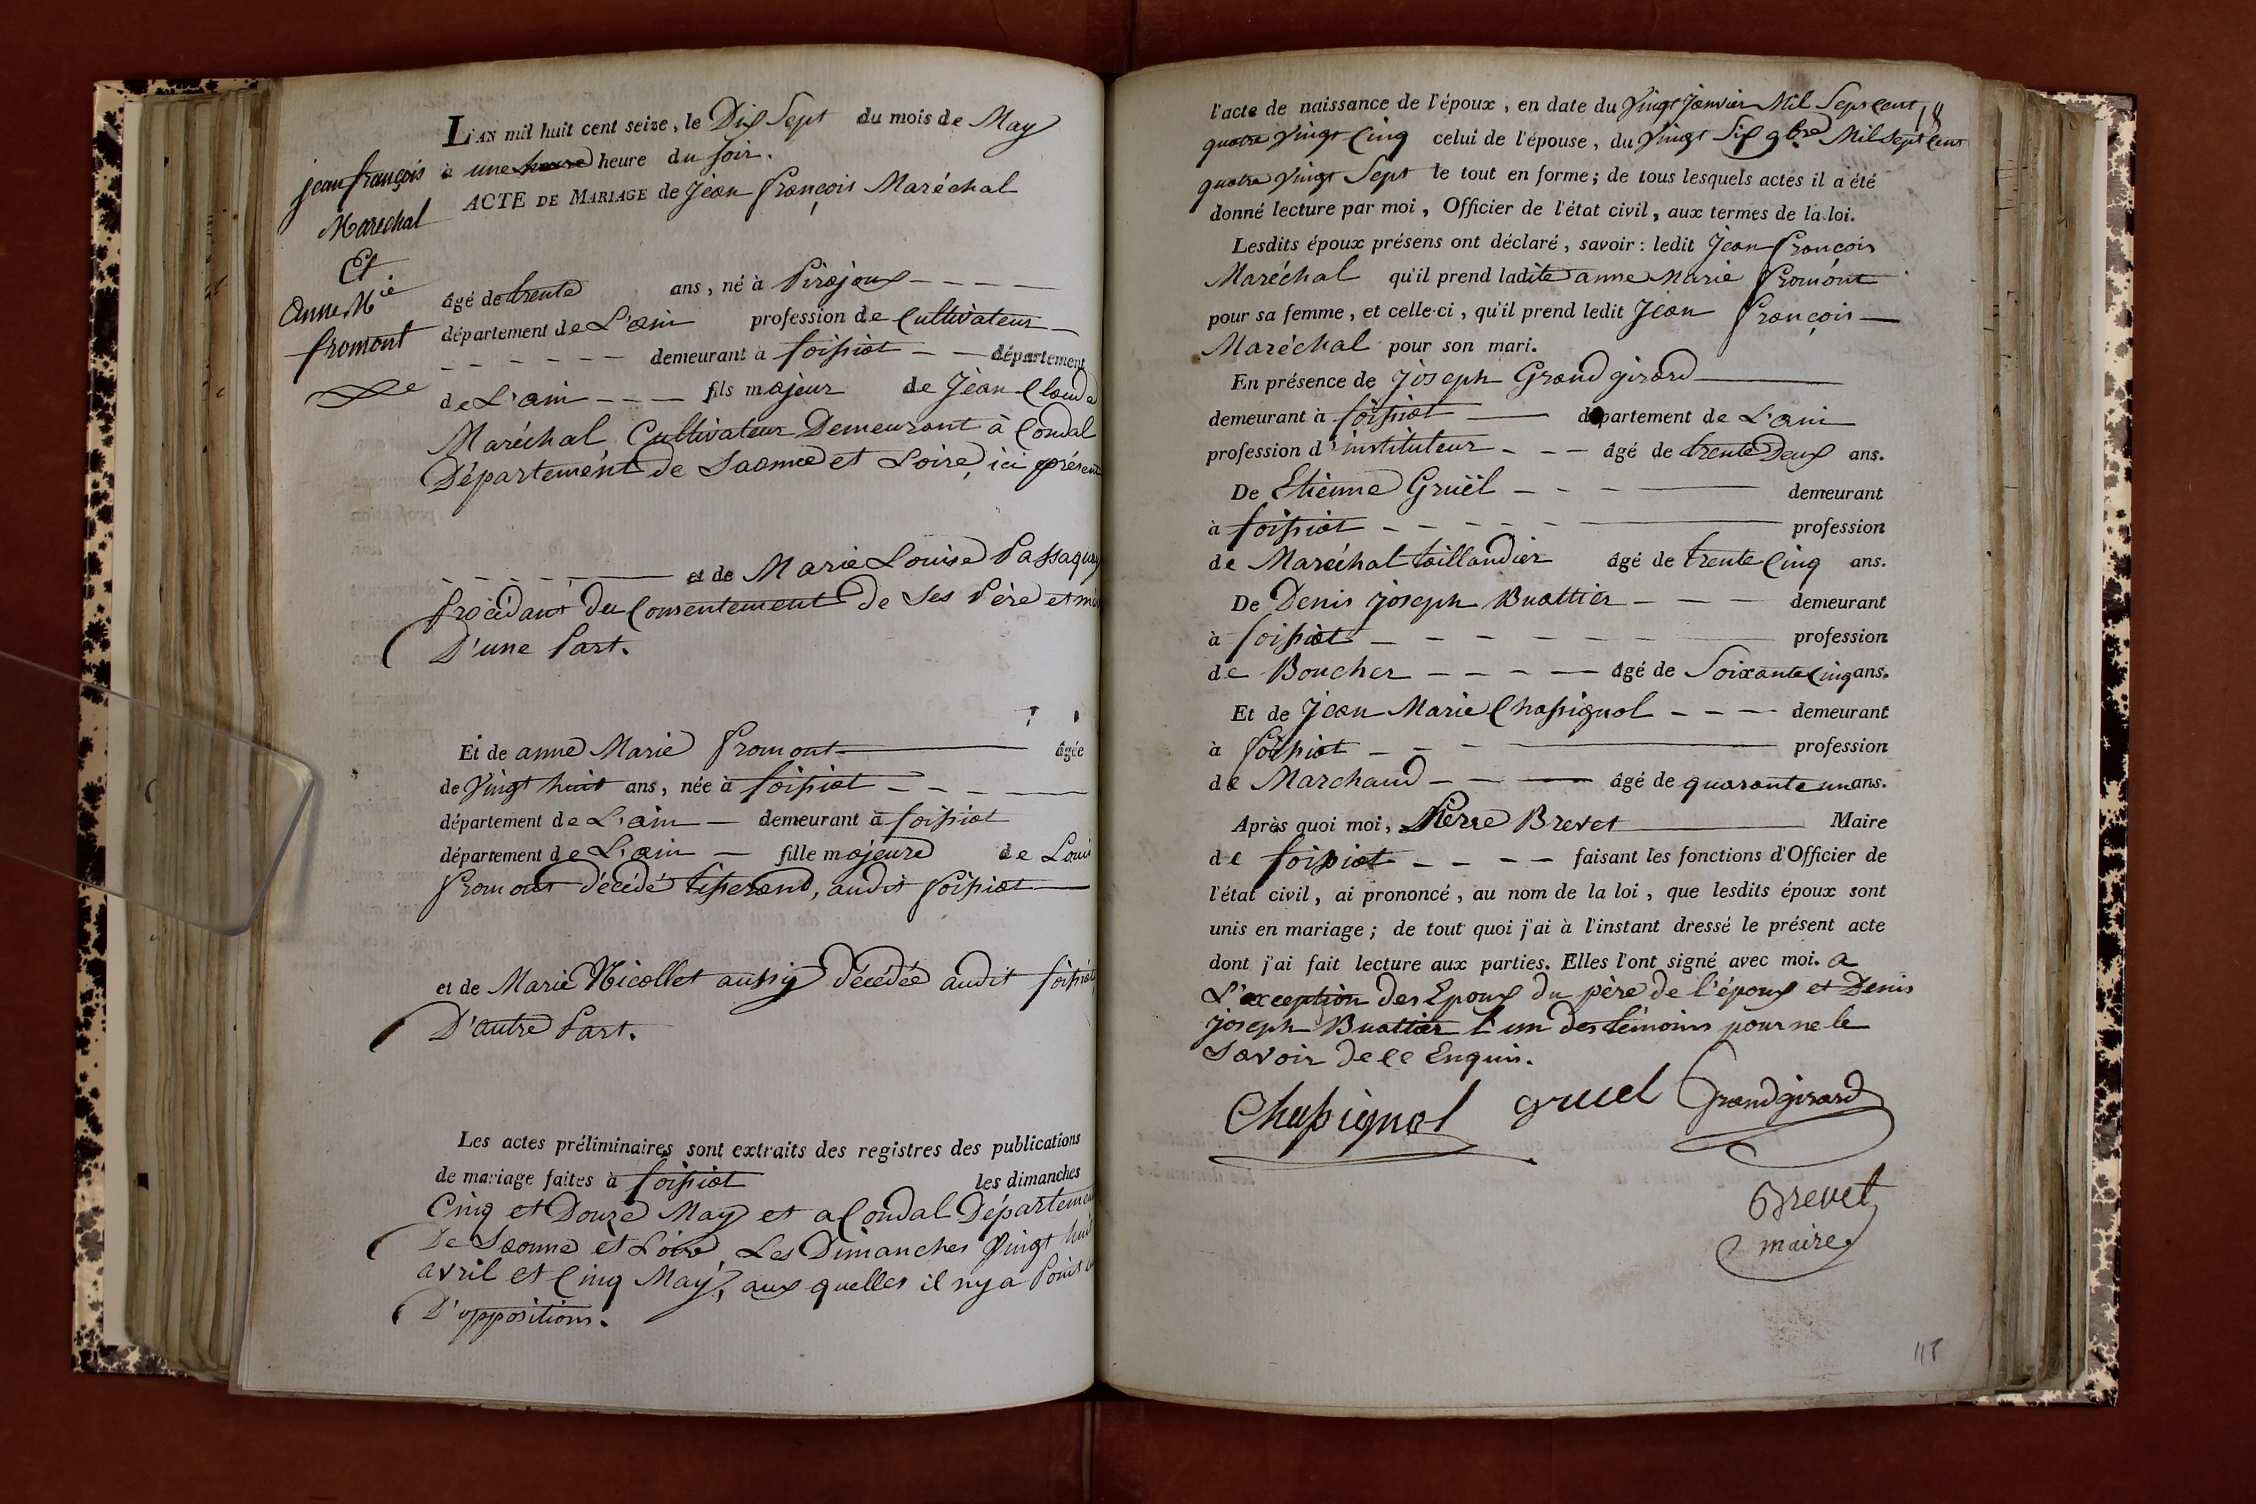 jean françois
Marechal
Et
Anne Mie
fromont
L'AN mil huit cent seize, le Dix Sept du mois de May
à une heure heure du Soir.
ACTE DE MARIAGE de Jean François Maréchal
âgé de trente ans, né à Pirajoux
département de L'ain profession de Cultivateur
demeurant à foissiat département
de L'ain fils majeur de Jean Claude
Maréchal Cultivateur Demeurant à Condal
Département de Saonne et Loire, ici présent
et de Marie Louise Passaquay
Procédant du Consentement de Ses Père et mère
D'une Part.
Et de anne Marie Fromont âgée
de Vingt huit ans, née à foissiat
département de L'ain demeurant à foissiat
département de L'ain fille majeure de Louis
Fromont décédé tisserand, audit foissiat
et de Marie Nicollet aussy décédée audit foissiat,
D'autre Part.
Les actes préliminaires sont extraits des registres des publications
de mariage faites à foissiat les dimanches
Cinq et Douze May et a Condal Département
De Saonne et Loire, Les Dimanches Vingt huit
avril et Cinq May, aux quelles il ny a Point
D'oppositions.
18
l'acte de naissance de l'époux, en date du Vingt Janvier Mil Sept Cent
quatre Vingt Cinq celui de l'épouse, du Vingt Six 9bre Mil Sept Cent
quatre Vingt Sept le tout en forme; de tous lesquels actes il a été
donné lecture par moi, Officier de l'état civil, aux termes de la loi.
Lesdits époux présens ont déclaré, savoir: ledit Jean François
Maréchal qu'il prend ladite anne Marie Fromont
pour sa femme, et celle-ci, qu'il prend ledit Jean François
Maréchal pour son mari.
En présence de Joseph Grand girard
demeurant à foissiat département de L'ain
profession d'instituteur âgé de trente Deux ans.
De Etienne Gruël demeurant
à foissiat profession
de Maréchal taillandier âgé de trente Cinq ans.
De Denis joseph Buattier demeurant
à foissiat profession
de Boucher âgé de Soixante Cinq ans.
Et de Jean Marie Chassignol demeurant
à foissiat profession
de Marchand âgé de quarante un ans.
Après quoi moi, Pierre Brevet Maire
de foissiat faisant les fonctions d'Officier de
l'état civil, ai prononcé, au nom de la loi, que lesdits époux sont
unis en mariage; de tout quoi j'ai à l'instant dressé le présent acte
dont j'ai fait lecture aux parties. Elles l'ont signé avec moi. a
L'exception des Epoux du père de l'époux et Denis
joseph Buattier l'un des témoins pour ne le
Savoir de ce Enquis.
Chassignol gruel Grandgirard
Brevet
maire
118